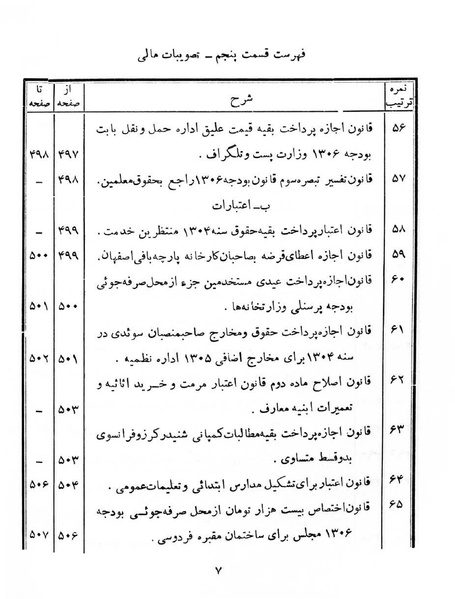 فهرست قسمت پنجم ــ تصویبات مالی
نمره ترتیب شرح از صفحه تا صفحه
۵۶ قانون اجازه پرداخت بقیه قیمت علیق اداره حمل و نقل بابت
بودجه ۱۳۰۶ وزارت پست و تلگراف . ۴۹۷ ۴۹۸
۵۷ قانون تفسیر تبصره سوم قانون بودجه ۱۳۰۶ راجع بحقوق معلمین . ۴۹۸ ــ
ب ــ اعتبارات
۵۸ قانون اعتبار پرداخت بقیه حقوق سنه ۱۳۰۴ منتظرین خدمت . ۴۹۹ ــ
۵۹ قانون اجازه اعطای قرضه بصاحبان کارخانه پارچه بافی اصفهان . ۴۹۹ ۵۰۰
۶۰ قانون اجازه پرداخت عیدی مستخدمین جزء از محل صرفه جوئی
بودجه پرسنلی وزارتخانه‌ها . ۵۰۰ ۵۰۱
۶۱ قانون اجازه پرداخت حقوق و مخارج صاحبمنصبان سوئدی در
سنه ۱۳۰۴ برای مخارج اضافی ۱۳۰۵ اداره نظمیه . ۵۰۱ ۵۰۲
۶۲ قانون اصلاح ماده دوم قانون اعتبار مرمت و خرید اثاثیه و
تعمیرات ابنیه معارف . ۵۰۳ ــ
۶۳ قانون اجازه پرداخت بقیه مطالبات کمپانی شنیدر کرزو فرانسوی
بدو قسط متساوی . ۵۰۳ ــ
۶۴ قانون اعتبار برای تشکیل مدارس ابتدائی و تعلیمات عمومی . ۵۰۴ ۵۰۶
۶۵ قانون اختصاص بیست هزار تومان از محل صرفه جوئی بودجه
۱۳۰۶ مجلس برای ساختمان مقبره فردوسی . ۵۰۶ ۵۰۷
۷